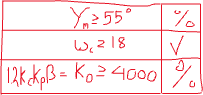 γm ≥ 55° %
ωc ≥ 18 √
1,2KcKpβ = K0 ≥ 4000 %